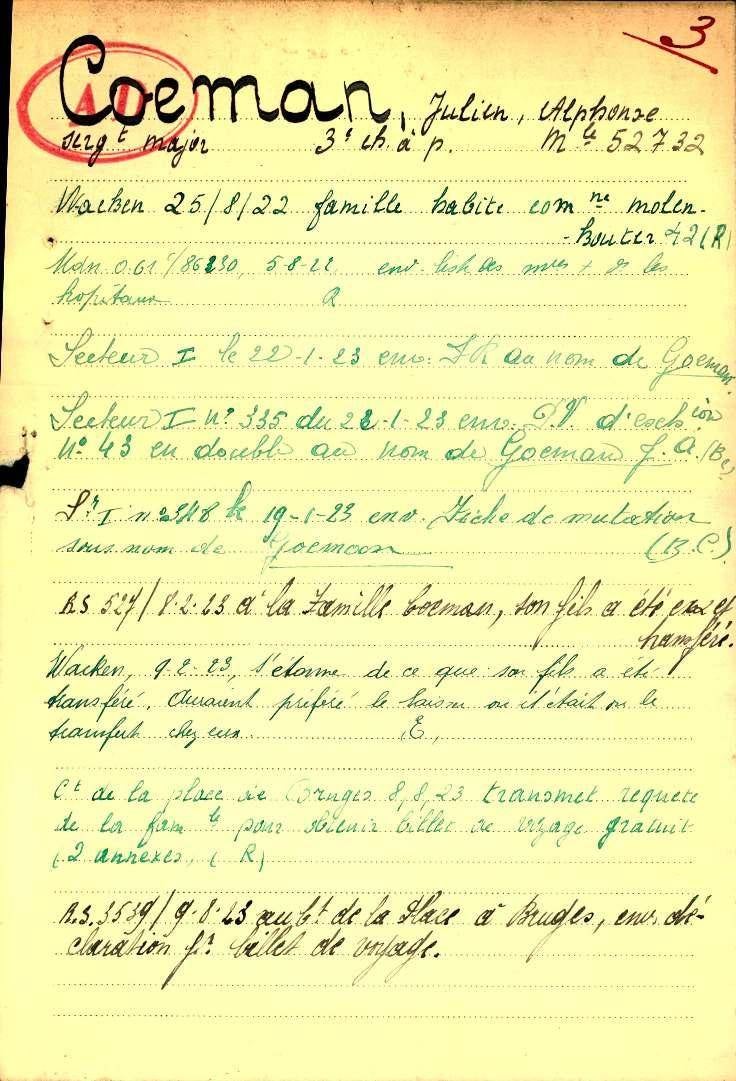 3
AD
Coeman, Julien, Alphonse
serg^t major 3^e ch. à p. M^le 52732
Wacken 25/8/22 famille habite com^ne molen-
-houter 42 (R)
Mdn 061^c/86230, 5-8-22, env. liste des
hopitaux R
Secteur I le 22-1-23 env. au nom de Goeman.
Secteur I n° 335 du 22-1-23 env. P.V. d'exch^ion
n° 43 en double au nom de Goeman J. A. (Bc)
S^r I n° 348 le 19-1-23 env. Fiche de mutation
sous nom de Goemoan (B.C.)
RS 527/8.2.23 à la famille Coeman, son fils a été ex. et
transféré.
Wacken, 9-2-23, s'étonne de ce que son fils a été
transféré. Auraient préféré le laisser où il était ou le
transfert chez eux. E,
C^t de la place de Bruges 8,8,23 transmet requete
de la fam^le pour obtenir billet de voyage gratuit
(2 annexes, (R)
R.S. 3539/9-8-23 au C^t de la Place à Bruges, env. dé-
claration p^r billet de voyage.